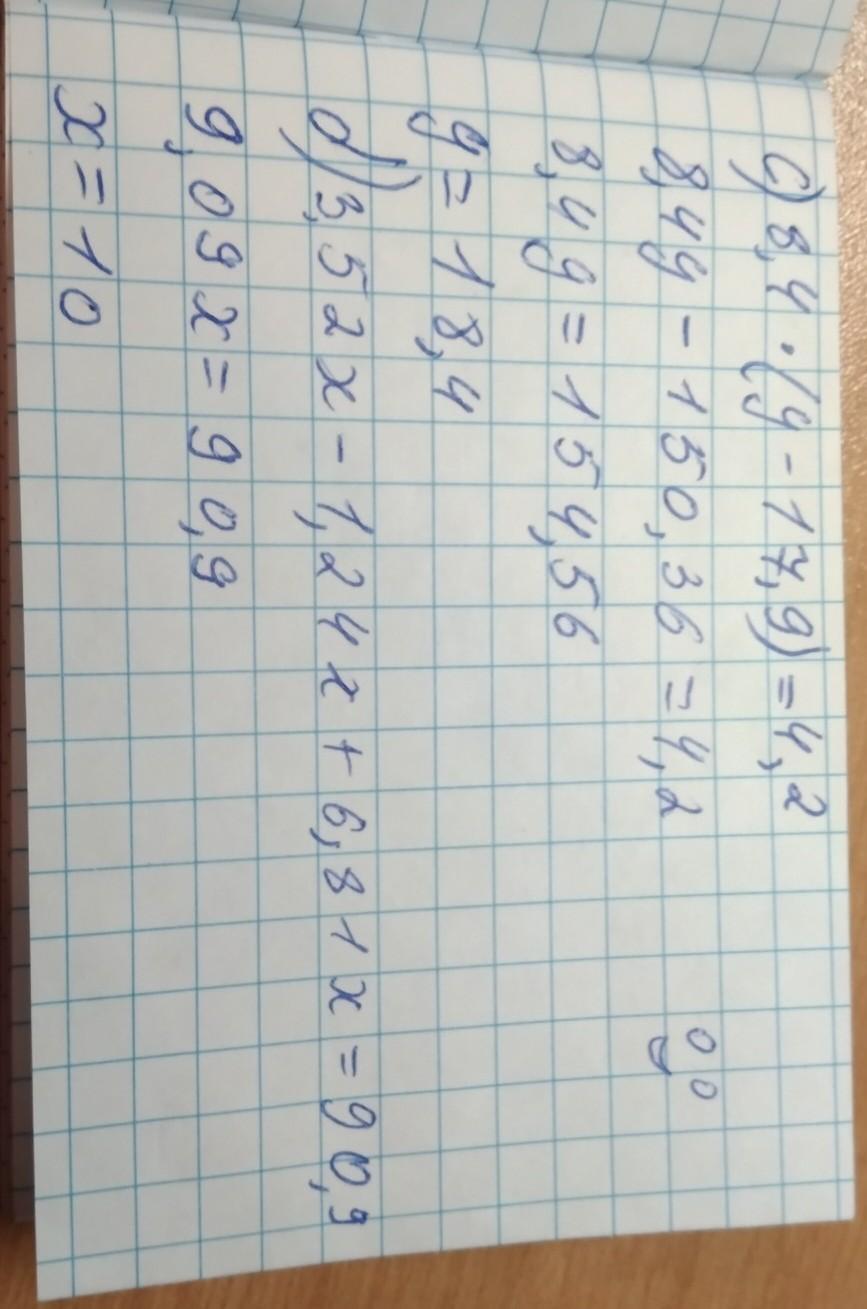 c) 8,4 · (y - 17,9) = 4,2
8,4y - 150,36 = 4,2
8,4y = 154,56
y = 18,4
d) 3,52x - 1,24x + 6,81x = 90,9
9,09x = 90,9
x = 10